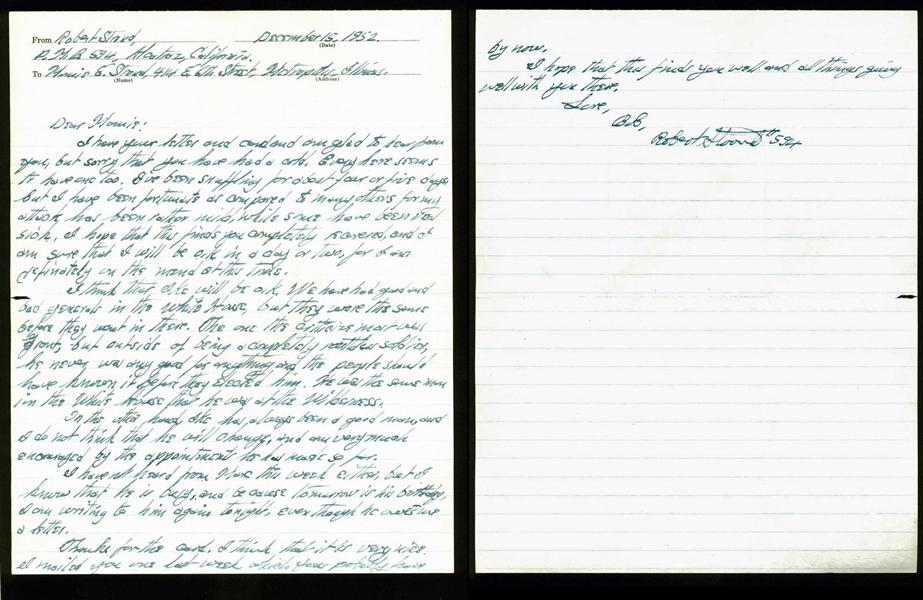 From Robert Stroud, December 15, 1952.
(Date)
P.M.B. 594 Alcatraz, California.
To Mamie E. Stroud, 414 E. Street, Metropolis, Illinois.
(Name) (Address)
Dear Mamie:
I have your letter and card and am glad to hear from
you, but sorry that you have had a cold. Every here seems
to have one too. I've been snuffling for about four or five days,
but I have been fortunate as compared to many others for my
attack has been rather mild, while some have been real
sick. I hope that this finds you completely recovered, and I
am sure that I will be o.k. in a day or two, for I am
definately on the mend at this time.
I think that Ike will be o.k. We have had good and
bad generals in the White House, but they were the same
before they went in there. The one the critisize most was
Grant, but outside of being a completely ruthless soldier,
he never was any good for anything and the people should
have known it before they elected him. He was the same man
in the White House that he was at the Wilderness.
On the other hand, Ike has always been a good man, and
I do not think that he will change, and am very much
encouraged by the appointment he has made so far.
I haven't heard from Marc this week either, but I
know that he is busy, and because tomorrow is his birthday,
I am writing to him again tonight, even though he owes me
a letter.
Thanks for the card. I think that it is very nice.
I mailed you one last week which you probably have
by now.
I hope that this finds you well and all things going
well with you there.
Love,
Bob,
Robert Stroud #594